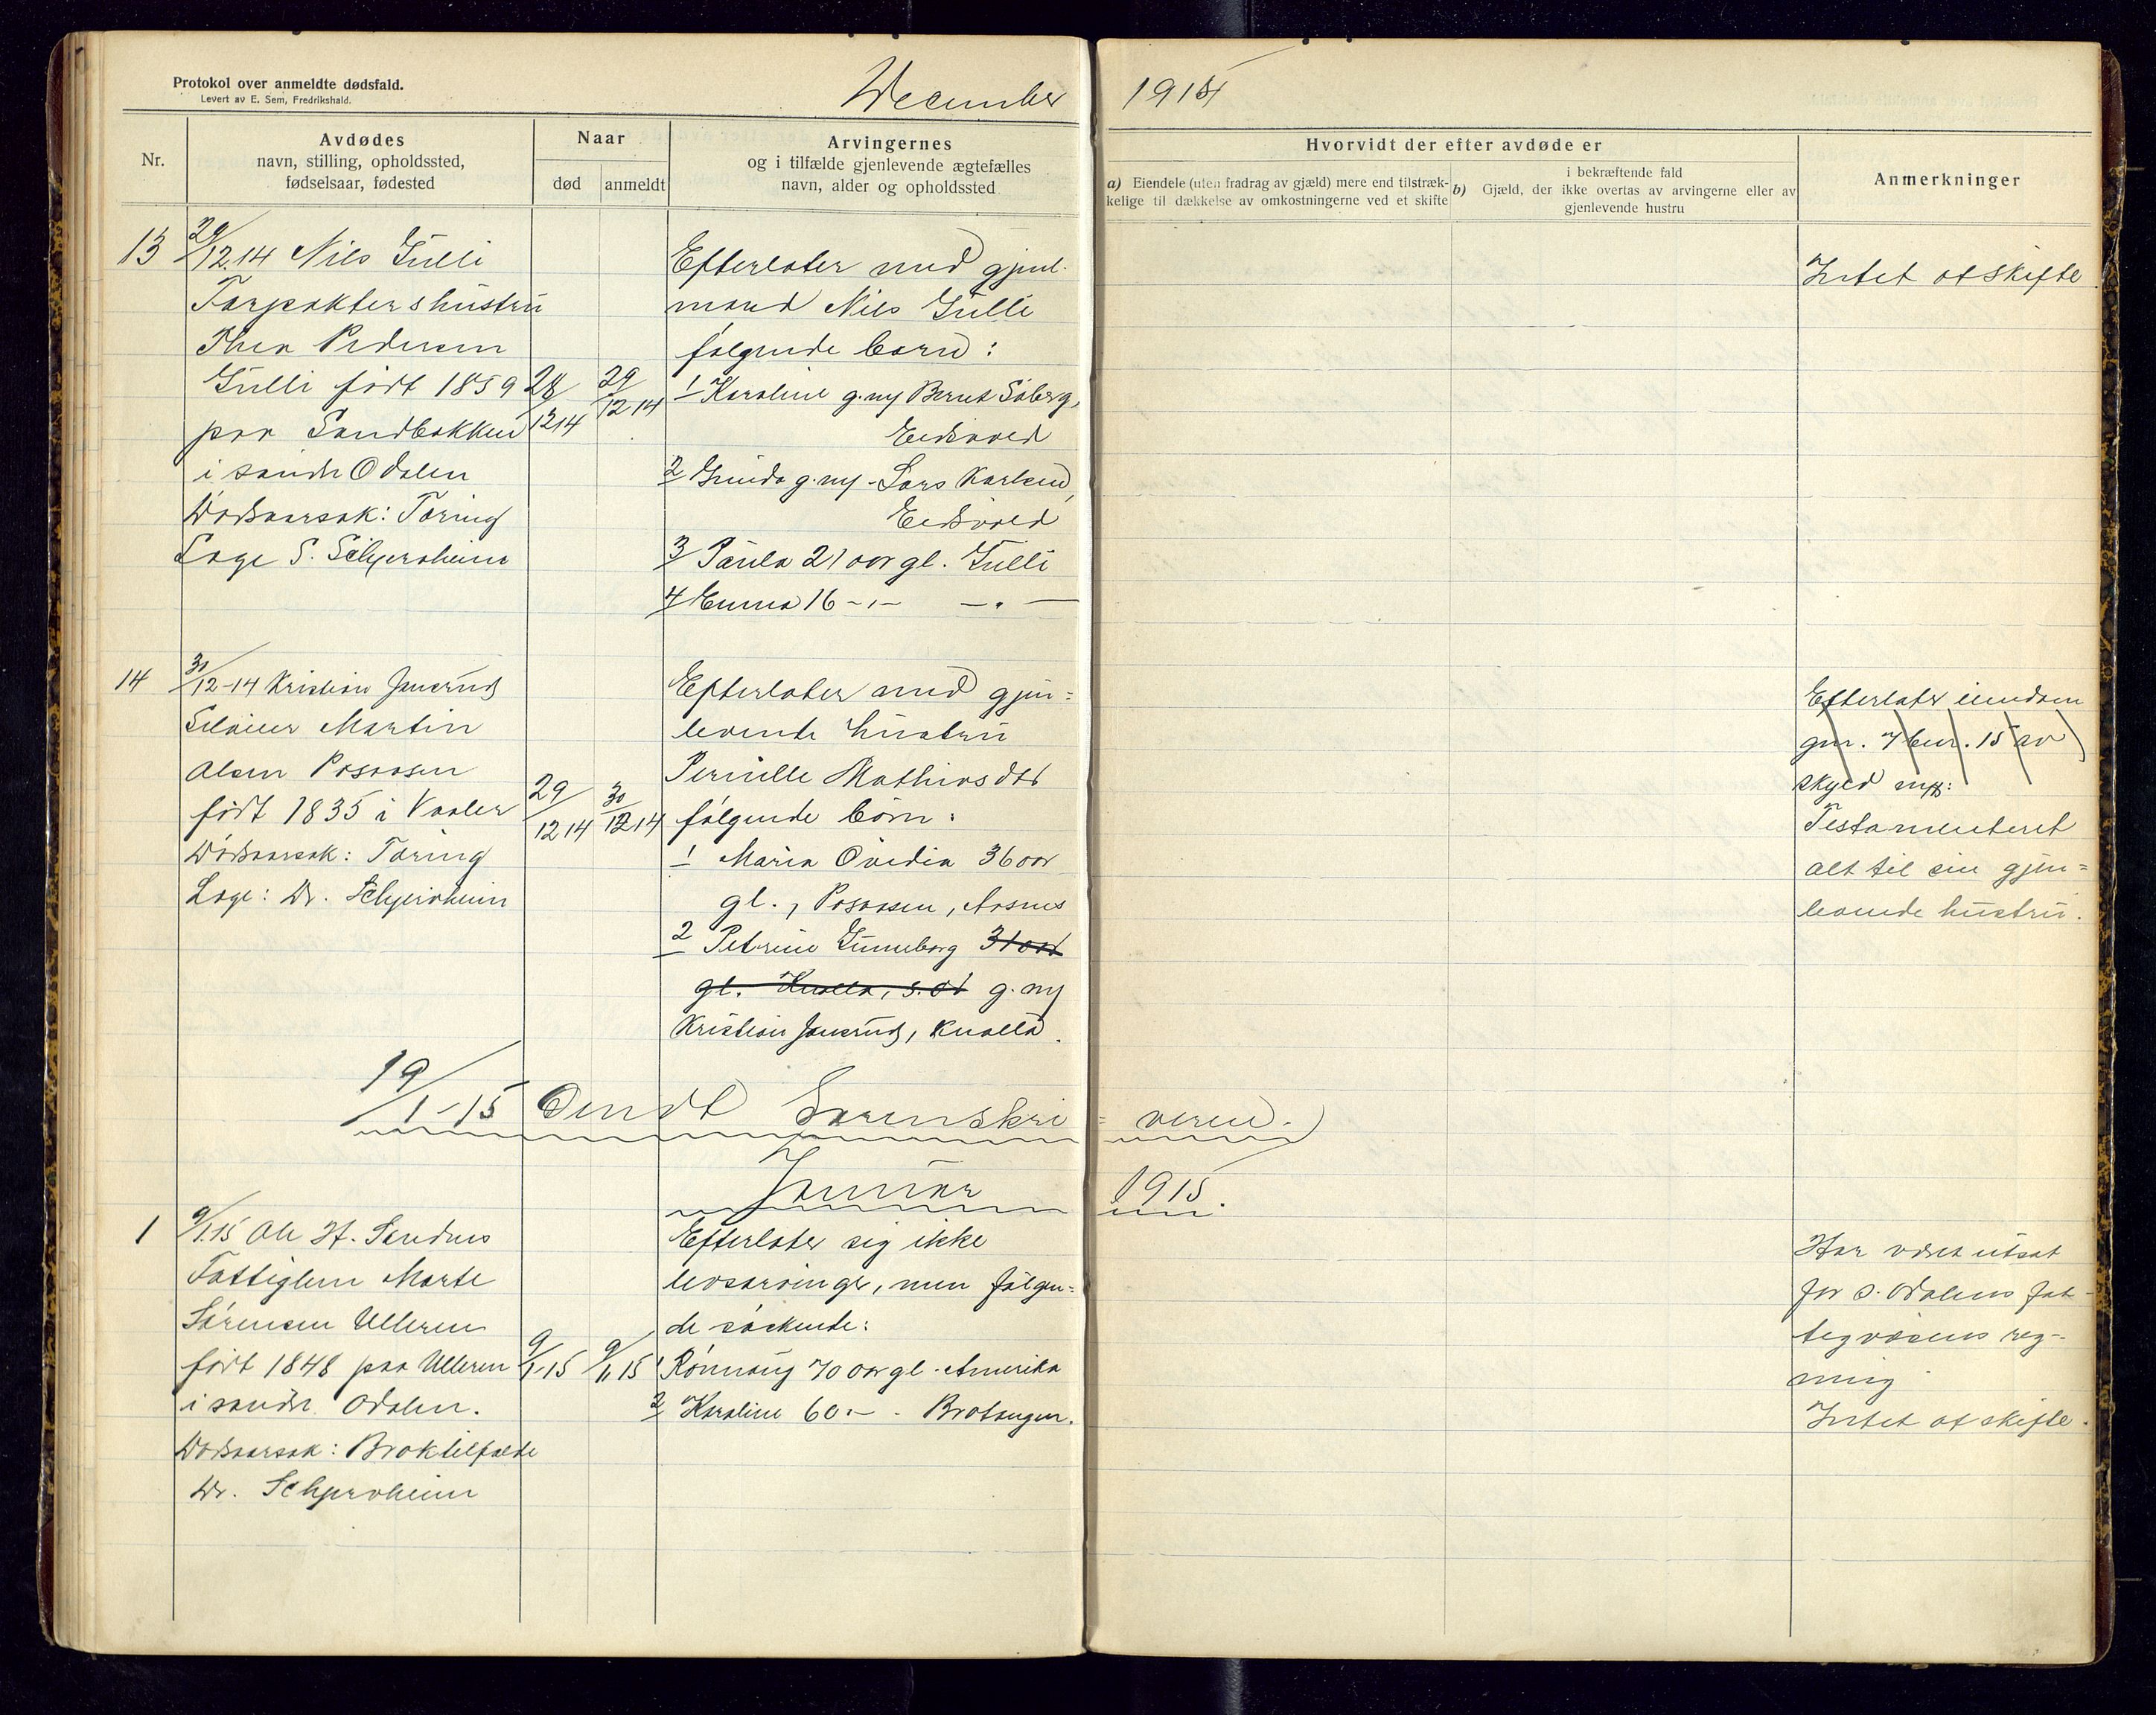 Protokol over anmeldte dødsfald.
Levert av E. Sem, Fredrikshald.
December 1914
Nr.
Avdødes
navn, stilling, opholdssted,
fødselsaar, fødested
Naar
død
anmeldt
Arvingernes
og i tilfælde gjenlevende ægtefælles
navn, alder og opholdssted
Hvorvidt der efter avdøde er
a) Eiendele (uten fradrag av gjæld) mere end tilstræk-
kelige til dækkelse av omkostningerne ved et skifte
i bekræftende fald
b) Gjæld, der ikke overtas av arvingerne eller av
gjenlevende hustru
Anmerkninger
13
29/12.14 Nils Gulli
Forpaktershustru
Thea Pedersen
Gulli født 1859
paa Sandbakken
i søndr Odalen
Dødsaarsak: Tæring
Læge S. Schjersheim
28/12 14
29/12 14
Efterlater med gjenl.
mand Nils Gulli
følgende barn:
1 Karoline g.m/ Bernt Søberg,
Eidsvold
2 Gunda g.m/ Lars Karlsen,
Eidsvold
3 Paula 21 aar gl. Gulli
4 Emma 16 -"- -"-
Intet at skifte
14
30/12-14 Kristian Jansrud
Selveier Martin
Olsen Posaasen
født 1835 i Vaaler
Dødsaarsak: Tæring
Læge: Dr. Schjersheim
29/12 14
30/12 14
Efterlater med gjen=
levende hustru
Pernille Mathiasdtr
følgende børn:
1 Maria Ovedia 36 aar
gl., Posaasen, Aasnes
2 Petrine Gunneborg 31 aar
gl. Knalla, s. Od g. m/
Kristian Jansrud, Knalla.
Efterlater eiendom
gnr. 7 bnr. 15 av
skyld mrk:
Testamenteret
alt til sin gjen=
levende hustru.
19/1-15 Sendt Sorenskri=veren.
Januar 1915.
1
9/1.15 Ole H. Sandnes
Fattiglem Marte
Sørensen Ulleren
født 1848 paa Ulleren
i søndr. Odalen.
Dødsaarsak: Broktilfælde
Dr. Schjersheim
9/1-15
9/1 15
Efterlater sig ikke
livsarvinger, men følgen=
de søskende:
1 Rønnaug 70 aar gl. Amerika
2 Karoline 60 -"- Brotangen.
Har været utsat
for s. Odalens fat-
tigvæsens reg-
ning
Intet at skifte.